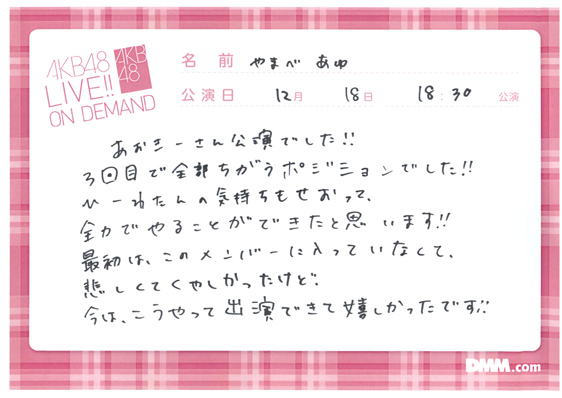 AKB48
LIVE!!
ON DEMAND
AKB
48
名前 やまべ あゆ
公演日 12月 18日 18:30 公演
あおきーさん公演でした!!
3回目で全部ちがうポジションでした!!
ひーわたんの気持ちもせおって、
全力でやることができたと思います!!
最初は、このメンバーに入っていなくて、
悲しくてくやしかったけど、
今は、こうやって出演できて嬉しかったです!!
DMM.com